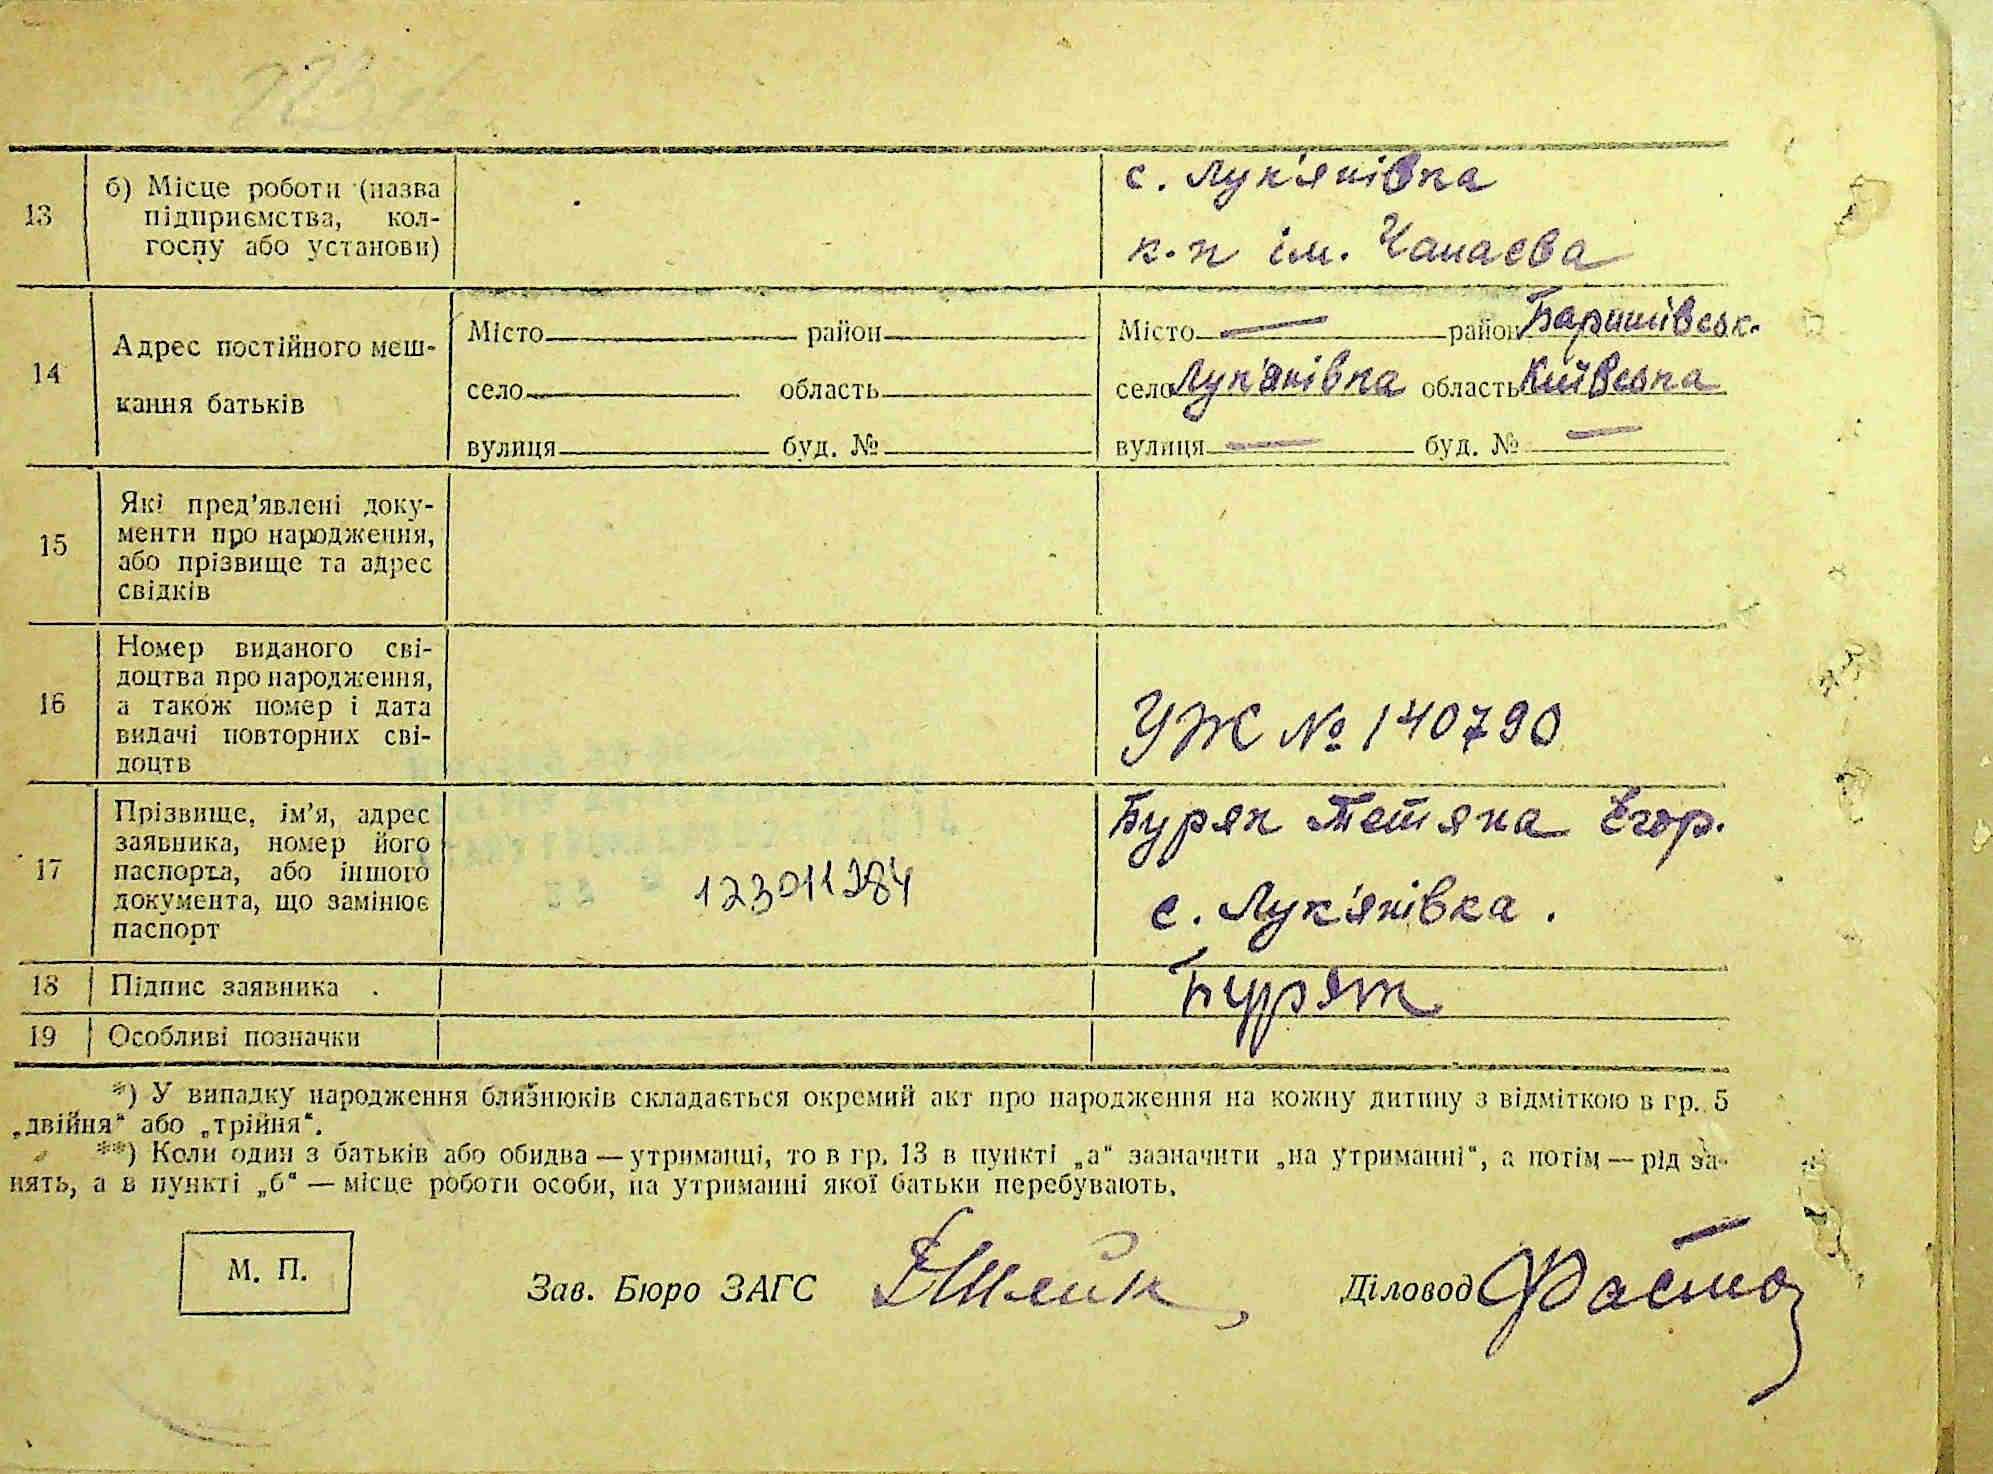 13
б) Місце роботи (назва
підприємства, кол-
госпу або установи)
с. Лук'янівка
к.п ім. Чапаєва
14
Адрес постійного меш-
кання батьків
Місто район
село область
вулиця буд. №
Місто — район Баришівськ.
село Лук'янівка область Київська
вулиця — буд. № —
15
Які пред'явлені доку-
менти про народження,
або прізвище та адрес
свідків
16
Номер виданого сві-
доцтва про народження,
а також номер і дата
видачі повторних сві-
доцтв
УЖ № 140790
17
Прізвище, ім'я, адрес
заявника, номер його
паспорта, або іншого
документа, що замінює
паспорт
123011284
Буряк Тетяна Егор.
с. Лук'янівка.
18 Підпис заявника
Буряк
19 Особливі позначки
*) У випадку народження близнюків складається окремий акт про народження на кожну дитину з відміткою в гр. 5
„двійня“ або „трійня“.
**) Коли один з батьків або обидва — утриманці, то в гр. 13 в пункті „а“ зазначити „на утриманні“, а потім — рід за-
нять, а в пункті „б“ — місце роботи особи, на утриманні якої батьки перебувають.
М. П.
Зав. Бюро ЗАГС
Діловод